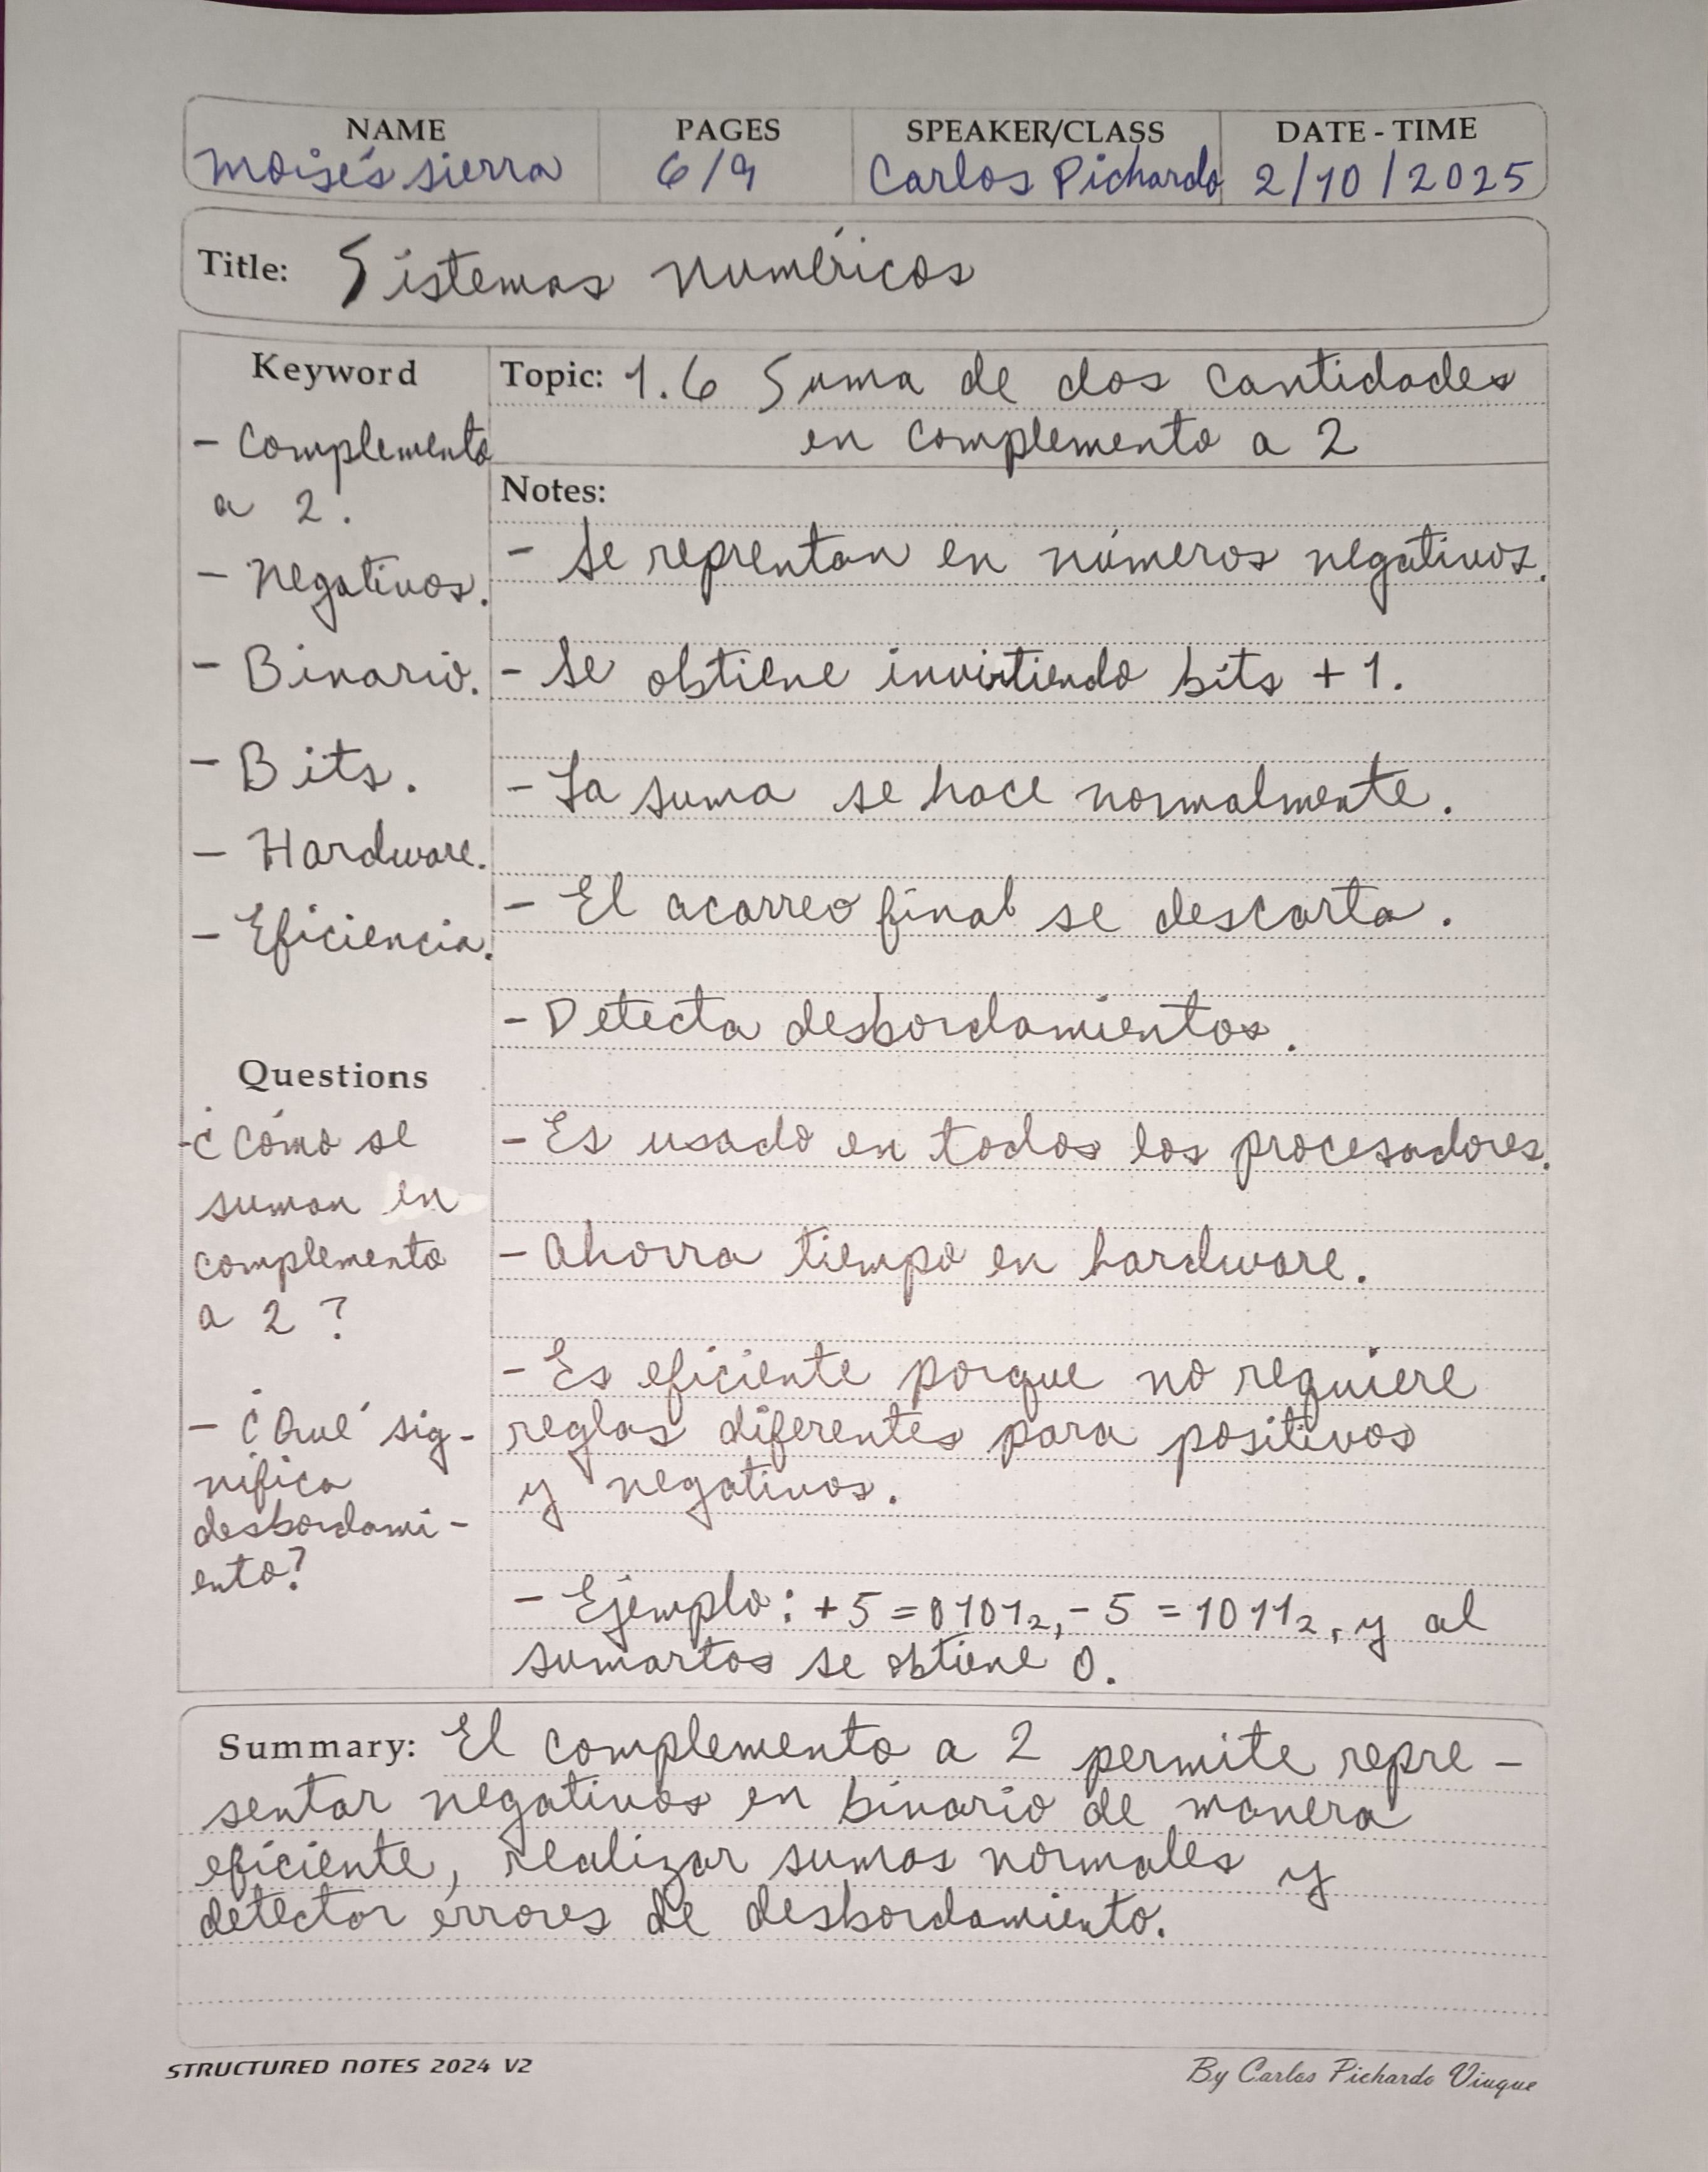 NAME PAGES SPEAKER/CLASS DATE - TIME
Moisés sierra 6/9 Carlos Pichardo 2/10/2025
Title: Sistemas numéricos
Keyword
- Complemento
a 2.
- Negativos.
- Binario.
- Bits.
- Hardware.
- Eficiencia.
Questions
-¿Cómo se
suman en
complemento
a 2 ?
- ¿Qué sig-
nifica
desbordami-
ento?
Topic: 1.6 Suma de dos cantidades
en complemento a 2
Notes:
- Se reprentan en números negativos.
- Se obtiene invirtiendo bits + 1.
- La suma se hace normalmente.
- El acarreo final se descarta.
- Detecta desbordamientos.
- Es usado en todos los procesadores.
- Ahorra tiempo en hardware.
- Es eficiente porque no requiere
reglas diferentes para positivos
y negativos.
- Ejemplo: +5 = 0101₂, - 5 = 1011₂, y al
sumartos se obtiene 0.
Summary: El complemento a 2 permite repre-
sentar negativos en binario de manera
eficiente, realizar sumas normales y
detectar errores de desbordamiento.
STRUCTURED NOTES 2024 V2
By Carlos Pichardo Viuque